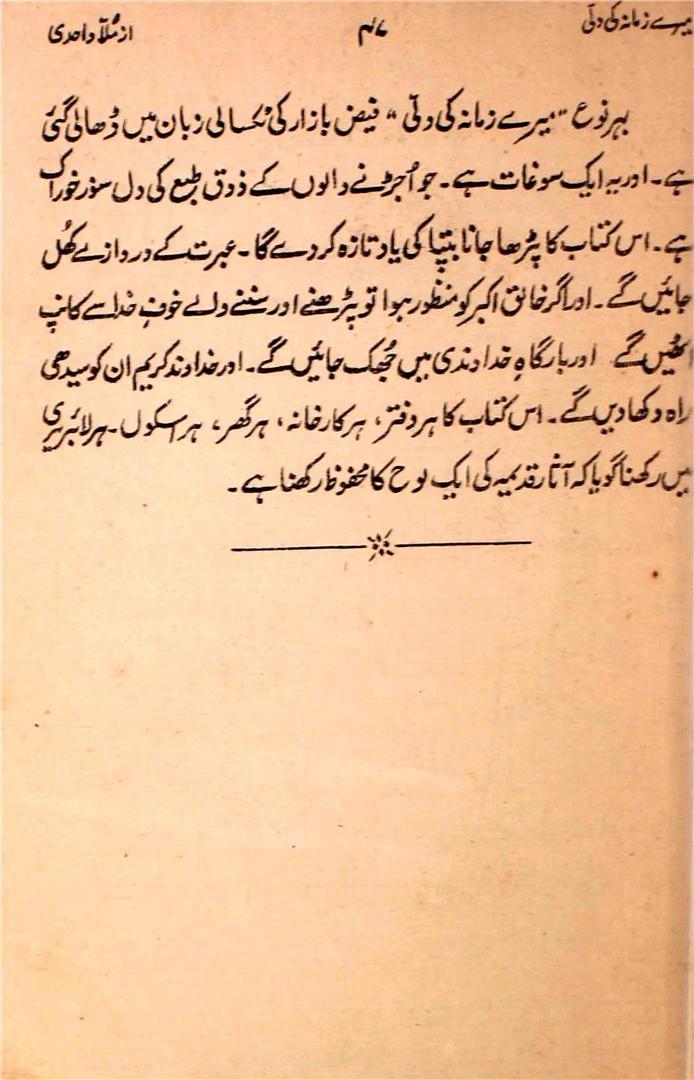 میرے زمانہ کی دلّی
۴۷
از مُلّا واحدی
بہر نوع "میرے زمانہ کی دلّی" فیض بازار کی ٹکسالی زبان میں ڈھالی گئی
ہے۔ اور یہ ایک سوغات ہے۔ جو اُجڑنے والوں کے ذوقِ طبع کی دل سوز خوراک
ہے۔ اس کتاب کا پڑھا جانا بیتا کی یاد تازہ کر دے گا۔ عبرت کے دروازے کھُل
جائیں گے۔ اور اگر خالقِ اکبر کو منظور ہوا تو پڑھنے اور سننے والے خوفِ خدا سے کانپ
اٹھیں گے اور بارگاہِ خداوندی میں جُھک جائیں گے۔ اور خداوند کریم ان کو سیدھی
راہ دکھا دیں گے۔ اس کتاب کا ہر دفتر، ہر کارخانہ، ہر گھر، ہر اسکول۔ ہر لائبریری
میں رکھنا گویا کہ آثارِ قدیمہ کی ایک لوح کا محفوظ رکھنا ہے۔